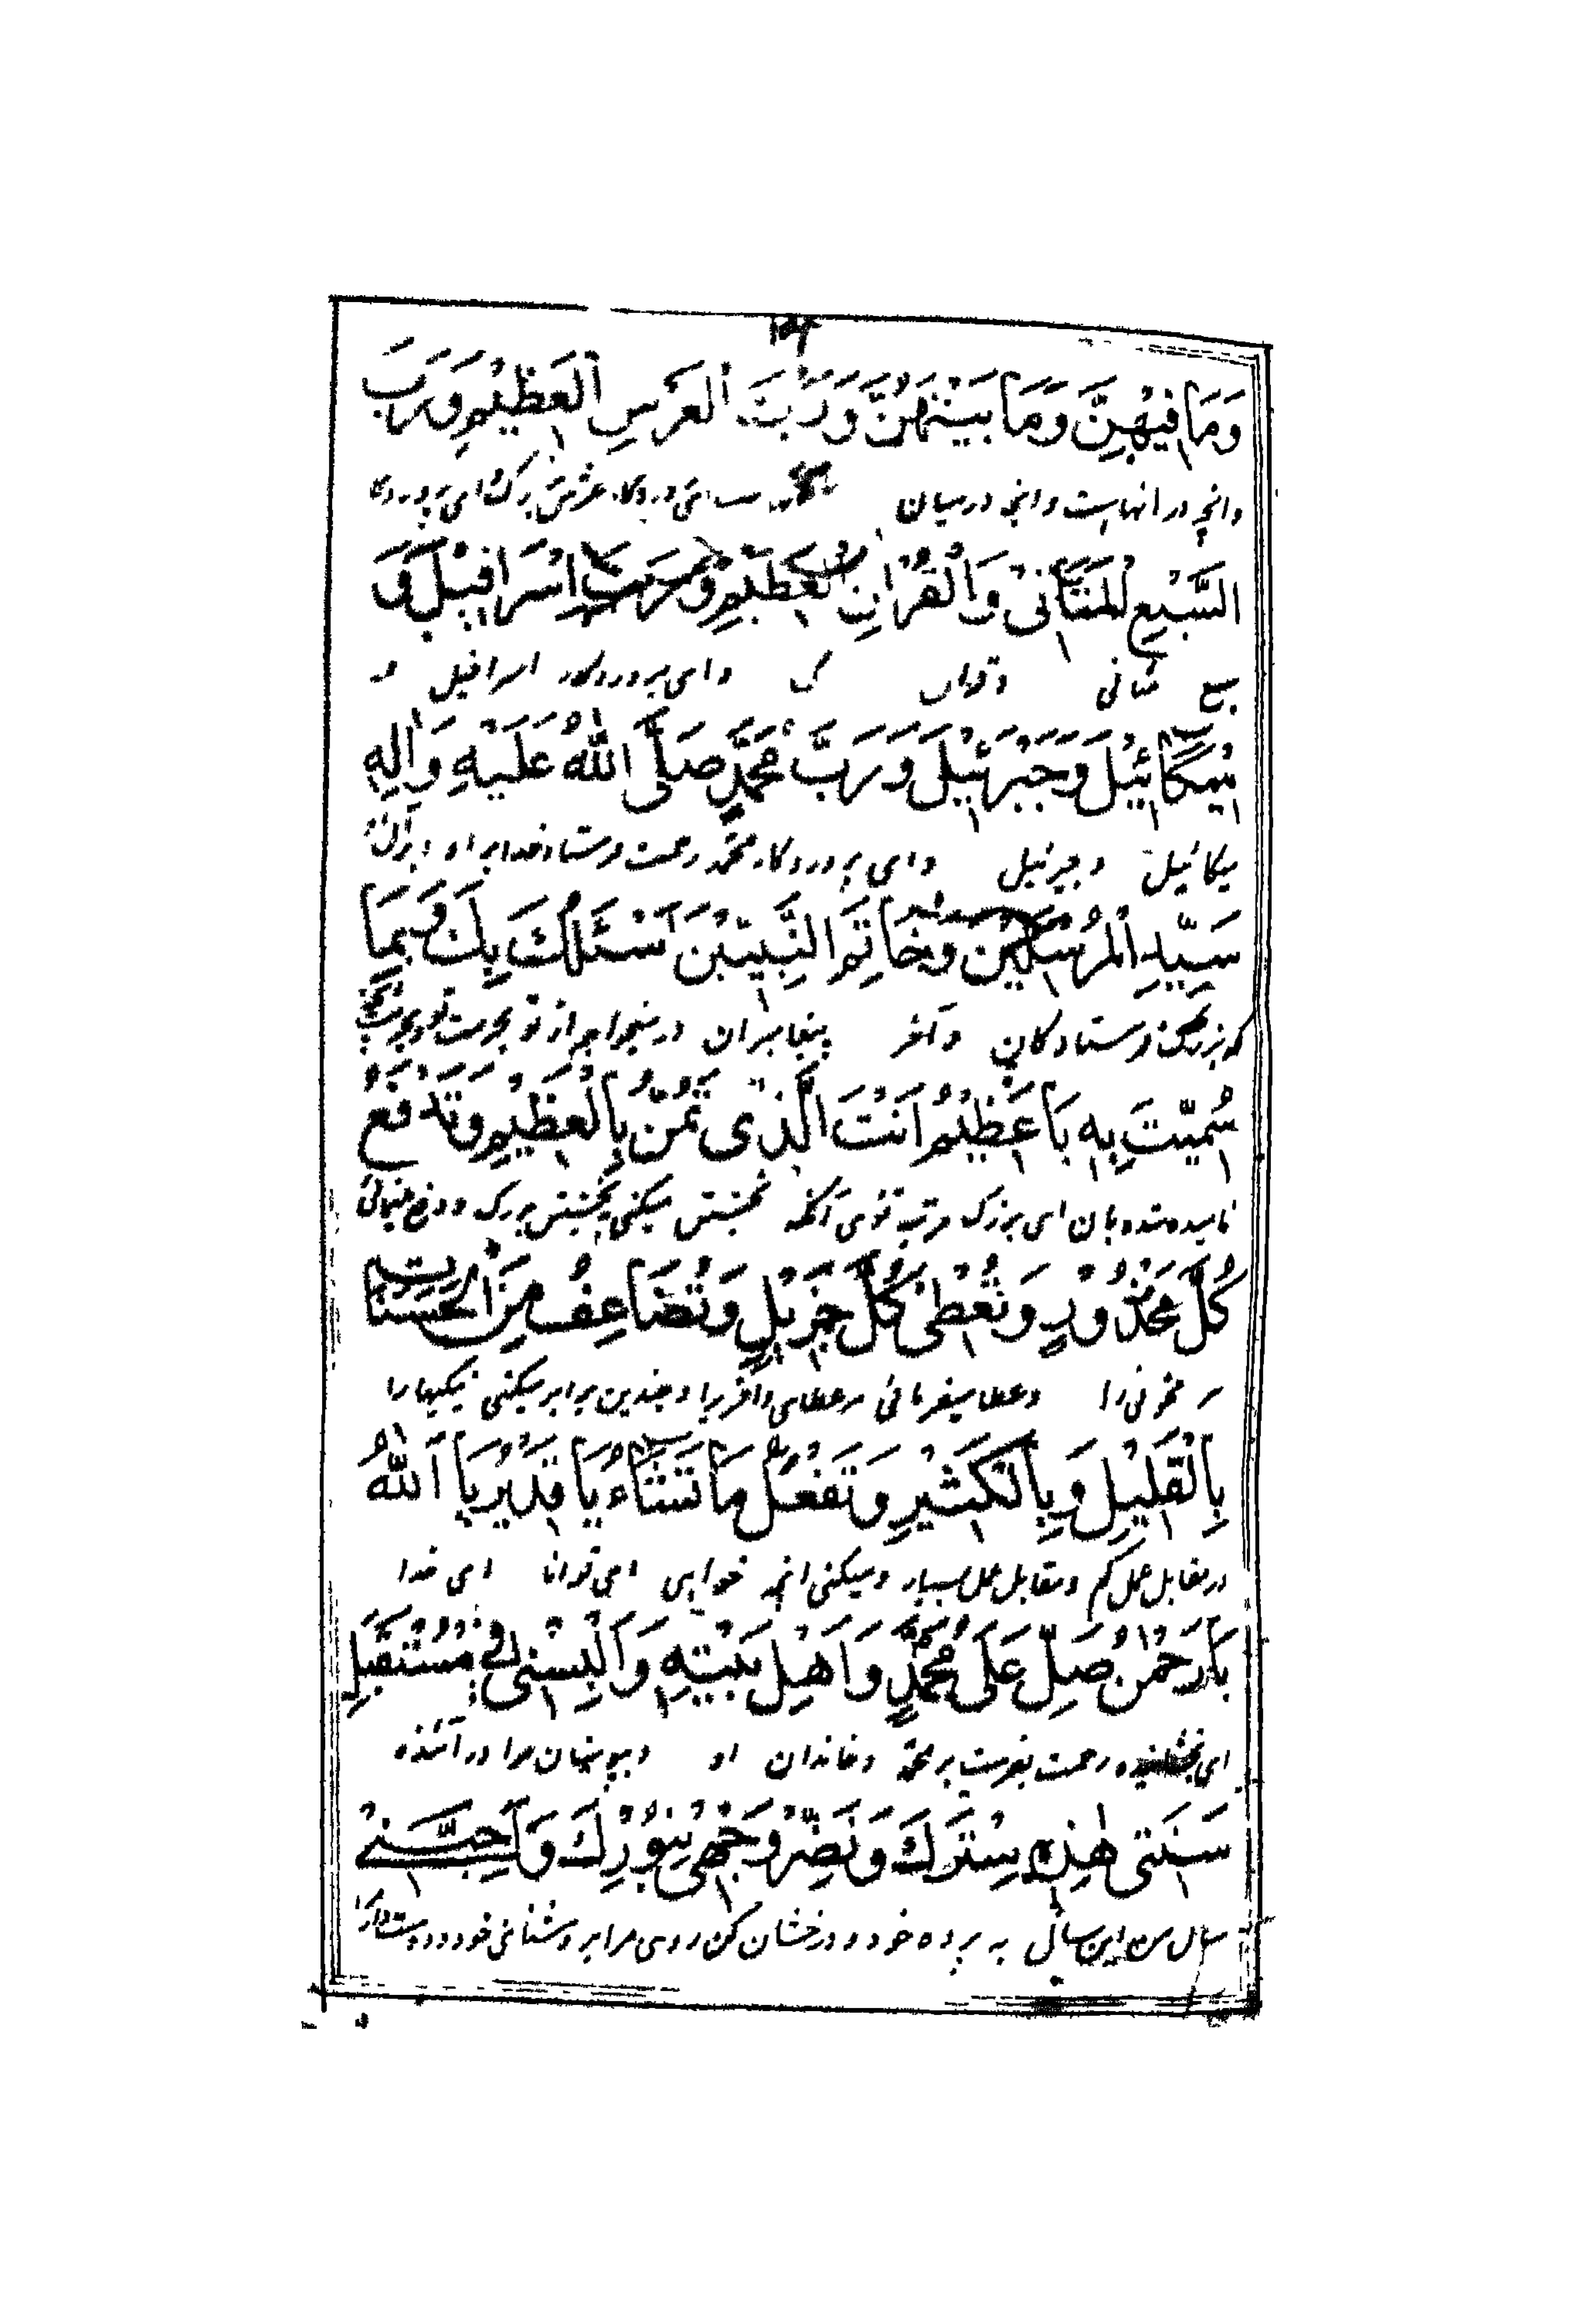 ۱۵۴
وَمَا فِيهِنَّ وَمَا بَيْنَهُنَّ وَرَبَّ الْعَرْشِ الْعَظِيْمِ وَرَبَّ
وانچه در انهاست وانچه درمیان ای پروردگار عرش بزرک ای پروردگا
السَّبْعِ الْمَثَانِيْ وَالْقُرْاٰنِ الْعَظِيْمِ وَرَبَّ اِسْرَافِيْلَ وَ
سبع مثانی وقران وای پروردگار اسرافیل و
مِيْكَائِيْلَ وَجَبْرَئِيْلَ وَرَبَّ مُحَمَّدٍ صَلَّى اللّٰهُ عَلَيْهِ وَاٰلِهِ
میکائیل وجبرئیل وای پروردگار محمد رحمت فرستاد خدا بر او و برآل
سَيِّدِ الْمُرْسَلِيْنَ وَخَاتَمِ النَّبِيِّيْنَ اَسْئَلُكَ بِكَ وَبِمَا
که بزرگ فرستادکان وآخر پیغامبران درمیخواهم از تو بحرمت تو وبحرمت
سُمِّيْتَ بِهِ يَا عَظِيْمُ اَنْتَ الَّذِى تَمُنُّ بِالْعَظِيْمِ وَتَدْفَعُ
نامیده شده بان ای بزرک مرتبه توئی آنکه بخشش میکنی بخشش بزرک ودفع مینمائی
كُلَّ مَحْذُوْرٍ وَتُعْطِى كُلَّ جَزِيْلٍ وَتُضَاعِفُ مِنَ الْحَسَنَاتِ
هر وعطا میفرمائی هر عطای وافر را وچندین برابر میکنی نیکیها را
بِالْقَلِيْلِ وَبِالْكَثِيْرِ وَتَفْعَلُ مَا تَشَاءُ يَا قَدِيْرُ يَا اَللّٰهُ
درمقابل عمل کم ومقابل عمل بسیار ومیکنی انچه خواهی ای توانا ای خدا
يَا رَحْمٰنُ صَلِّ عَلَى مُحَمَّدٍ وَاَهْلِ بَيْتِهِ وَاَلْبِسْنِى فِى مُسْتَقْبَلِ
ای بخشاینده رحمت بفرست بر محمد وخاندان او وبپوشان مرا در آئنده
سَنَتِى هٰذِهِ سِتْرَكَ وَنَضِّرْ وَجْهِى بِنُوْرِكَ وَاَحِبَّنِىْ
سال من این سال به پرده خود ودرخشان کن روی مرا بروشنائی خود ودوست دار